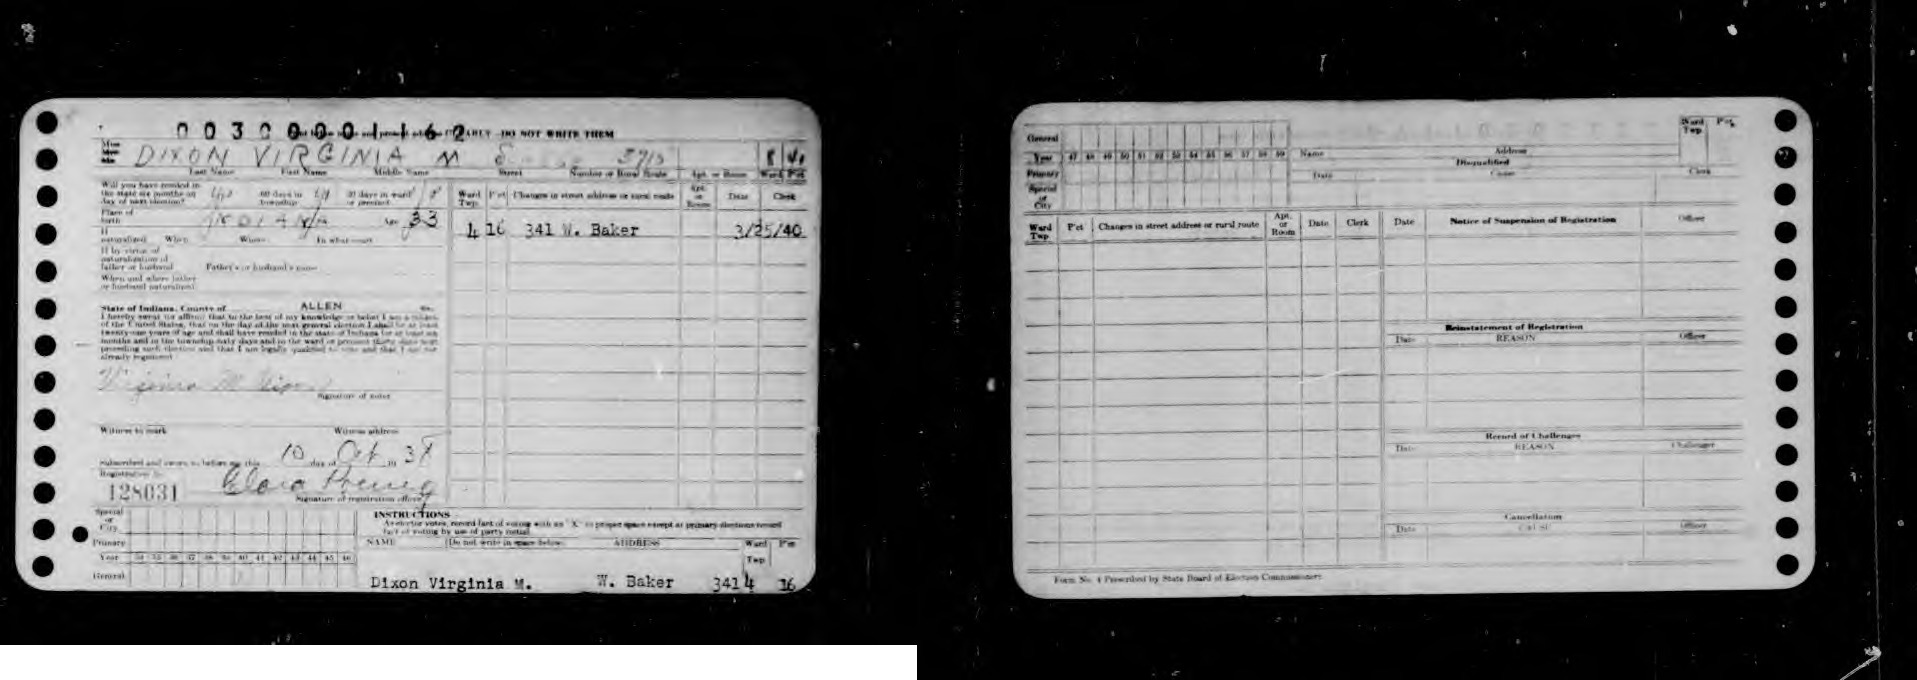 00300001162 CLEARLY—DO NOT WRITE THEM
DIXON VIRGINIA M 3715
Last Name First Name Middle Name Street Number or Rural Route Apt. or Room Ward Pct
Will you have resided in
the state six months on 60 days in 30 days in ward
day of next election? township or precinct
Place of
birth INDIANA Age 33
If
naturalized When Where In what court
If by virtue of
naturalization of
father or husband Father's or husband's name
When and where father
or husband naturalized
State of Indiana, County of ALLEN ss.
I hereby swear (or affirm) that to the best of my knowledge or belief I am a citizen
of the United States, that on the day of the next general election I shall be at least
twenty-one years of age and shall have resided in the state of Indiana for at least six
months and in the township sixty days and in the ward or precinct thirty days next
preceding such election and that I am legally qualified to vote and that I am not
already registered
Virginia M Dixon
Signature of voter
Witness to mark Witness address
Subscribed and sworn to before me this 10 day of Oct 19 38
Registration No.
128031 Clara
Signature of registration officer
Ward Twp. P'ct Changes in street address or rural route Apt. or Room Date Clerk
4 16 341 W. Baker 3/25/40
Special
or
City
Primary
Year 34 35 36 37 38 39 40 41 42 43 44 45 46
General
INSTRUCTIONS
As elector votes, record fact of voting with an "X" in proper space except at primary elections record
fact of voting by use of party initial.
NAME (Do not write in space below) ADDRESS Ward Twp P'ct
Dixon Virginia M. W. Baker 341 4 16
General
Year 47 48 49 50 51 52 53 54 55 56 57 58 59
Primary
Special
or
City
Name Address Ward Twp. P'ct.
Disqualified
Date Cause Clerk
Ward Twp P'ct Changes in street address or rural route Apt. or Room Date Clerk
Date Notice of Suspension of Registration Officer
Reinstatement of Registration
Date REASON Officer
Record of Challenges
Date REASON Challenger
Cancellation
Date CAUSE Officer
Form No. 4 Prescribed by State Board of Election Commissioners